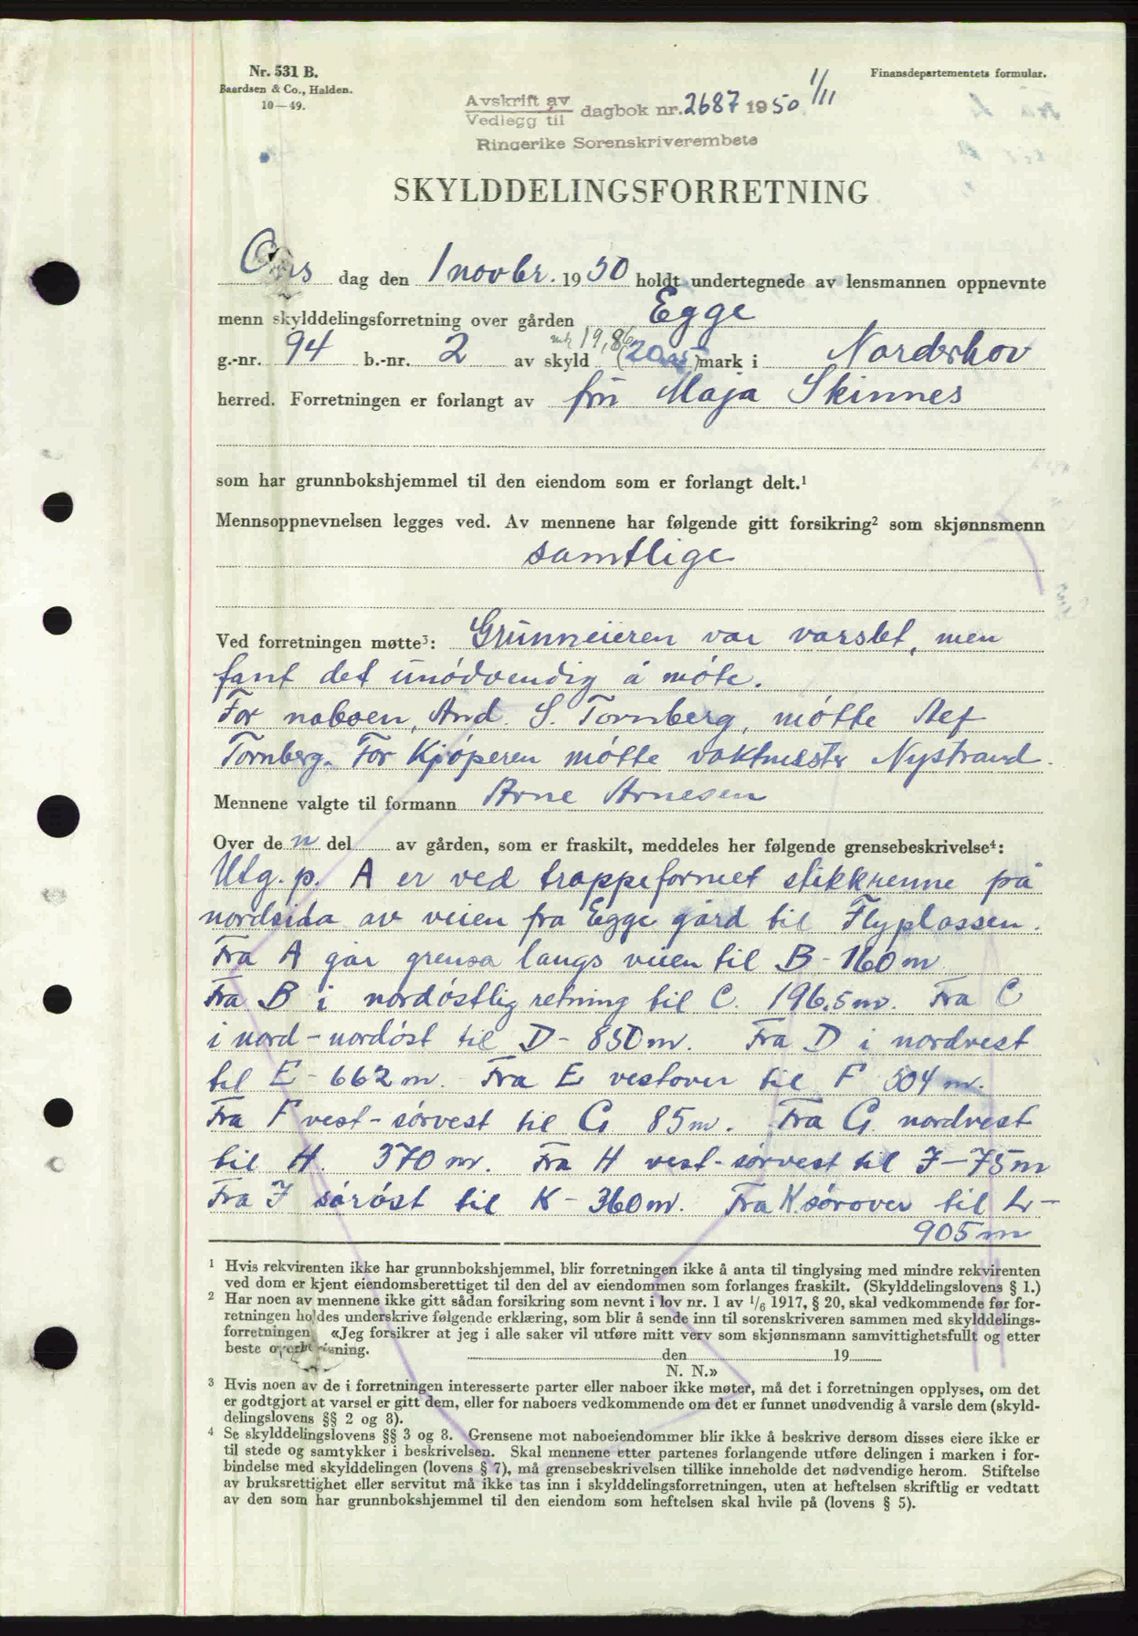 Nr. 531 B.
Baardsen & Co., Halden.
10—49.
Finansdepartementets formular.
1/11
Avskrift av
Vedlegg til dagbok nr. 2687 1950
Ringerike Sorenskriverembete
SKYLDDELINGSFORRETNING
Ons dag den 1 novbr. 1950 holdt undertegnede av lensmannen oppnevnte
menn skylddelingsforretning over gården Egge
mk 19,86
g.-nr. 94 b.-nr. 2 av skyld mark i Norderhov
herred. Forretningen er forlangt av fru Maja Skinnes
som har grunnbokshjemmel til den eiendom som er forlangt delt.¹
Mennsoppnevnelsen legges ved. Av mennene har følgende gitt forsikring² som skjønnsmenn
samtlige
Ved forretningen møtte³: Grunneieren var varslet, men
fant det unødvendig å møte.
For naboen, And. S. Tornberg, møtte
Tornberg. For Kjøperen møtte vaktmester Nystrand.
Mennene valgte til formann Arne Arnesen
Over de n del av gården, som er fraskilt, meddeles her følgende grensebeskrivelse⁴:
Utg. p. A er ved trappeformet stikkrenne på
nordsida av veien fra Egge gård til Flyplassen.
Fra A går grensa langs veien til B - 160 m
Fra B i nordøstlig retning til C. 196,5 m. Fra C
i nord-nordøst til D - 850 m. Fra D i nordvest
til E - 662 m. Fra E vestover til F 504 m.
Fra F vest-sørvest til G 85 m. Fra G nordvest
til H. 370 m. Fra H vest-sørvest til J - 75 m
Fra J sørøst til K - 360 m. Fra K sørover til L -
905 m
¹ Hvis rekvirenten ikke har grunnbokshjemmel, blir forretningen ikke å anta til tinglysing med mindre rekvirenten
ved dom er kjent eiendomsberettiget til den del av eiendommen som forlanges fraskilt. (Skylddelingslovens § 1.)
² Har noen av mennene ikke gitt sådan forsikring som nevnt i lov nr. 1 av 1/6 1917, § 20, skal vedkommende før for-
retningen holdes underskrive følgende erklæring, som blir å sende inn til sorenskriveren sammen med skylddelings-
forretningen «Jeg forsikrer at jeg i alle saker vil utføre mitt verv som skjønnsmann samvittighetsfullt og etter
beste overbevisning. den 19
N. N.»
³ Hvis noen av de i forretningen interesserte parter eller naboer ikke møter, må det i forretningen opplyses, om det
er godtgjort at varsel er gitt dem, eller for naboers vedkommende om det er funnet unødvendig å varsle dem (skyld-
delingslovens §§ 2 og 8).
⁴ Se skylddelingslovens §§ 3 og 8. Grensene mot naboeiendommer blir ikke å beskrive dersom disses eiere ikke er
til stede og samtykker i beskrivelsen. Skal mennene etter partenes forlangende utføre delingen i marken i for-
bindelse med skylddelingen (lovens § 7), må grensebeskrivelsen tillike inneholde det nødvendige herom. Stiftelse
av bruksrettighet eller servitut må ikke tas inn i skylddelingsforretningen, uten at heftelsen skriftlig er vedtatt
av den som har grunnbokshjemmel til den eiendom som heftelsen skal hvile på (lovens § 5).